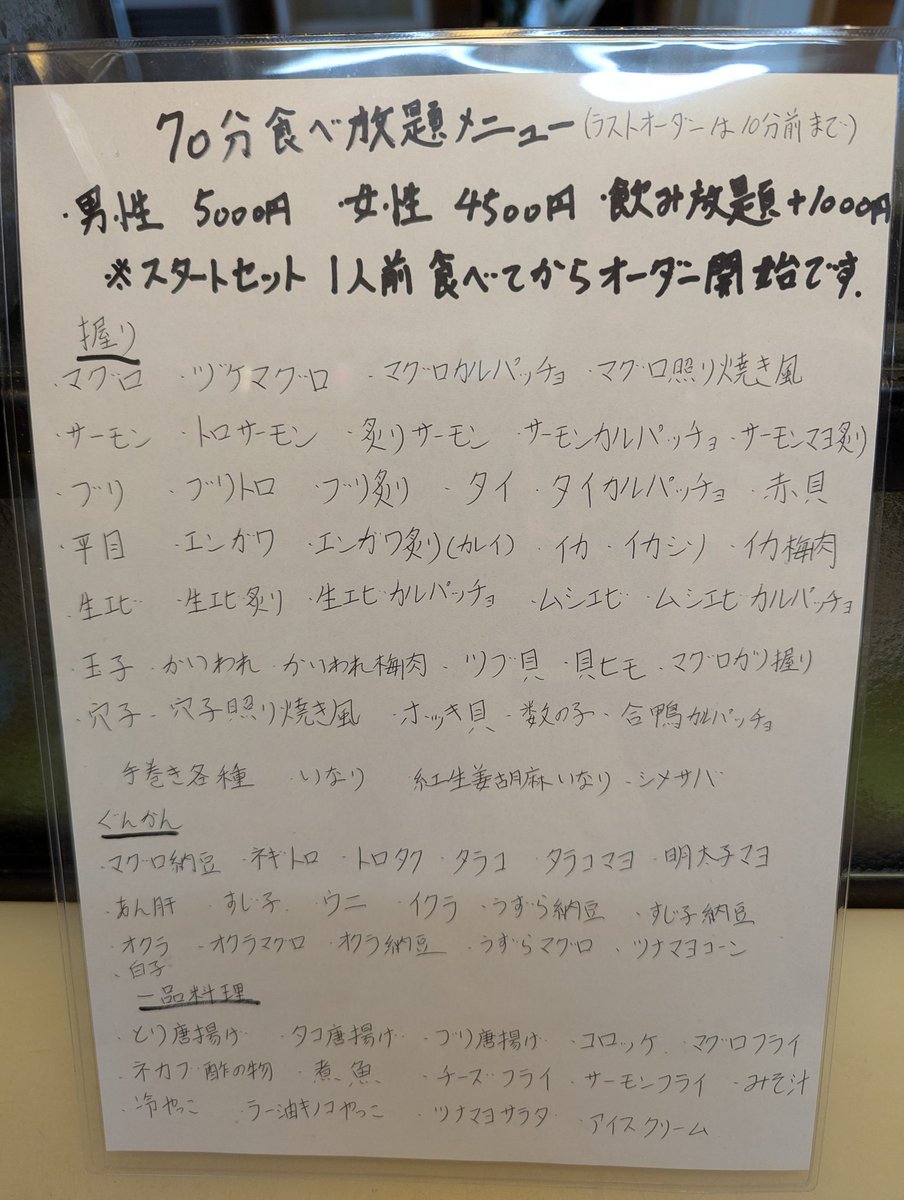 70分食べ放題メニュー(ラストオーダーは10分前まで)
・男性 5000円 ・女性 4500円 ・飲み放題+1000円
※スタートセット 1人前 食べてからオーダー開始です.
握り
・マグロ ・ヅケマグロ ・マグロカルパッチョ ・マグロ照り焼き風
・サーモン ・トロサーモン ・炙りサーモン ・サーモンカルパッチョ ・サーモンマヨ炙り
・ブリ ・ブリトロ ・ブリ炙り ・タイ ・タイカルパッチョ ・赤貝
・平目 ・エンガワ ・エンガワ炙り(カレイ) ・イカ ・イカシソ ・イカ梅肉
・生エビ ・生エビ炙り ・生エビカルパッチョ ・ムシエビ ・ムシエビカルパッチョ
・玉子 ・かいわれ ・かいわれ梅肉 ・ツブ貝 ・貝ヒモ ・マグロガリ握り
・穴子 ・穴子照り焼き風 ・ホッキ貝 ・数の子 ・合鴨カルパッチョ
手巻き各種 ・いなり ・紅生姜胡麻いなり ・シメサバ
ぐんかん
・マグロ納豆 ・ネギトロ ・トロタク ・タラコ ・タラコマヨ ・明太子マヨ
・あん肝 ・すじ子 ・ウニ ・イクラ ・うずら納豆 ・すじ子納豆
・オクラ ・オクラマグロ ・オクラ納豆 ・うずらマグロ ・ツナマヨコーン
・白子
一品料理
・とり唐揚げ ・タコ唐揚げ ・ブリ唐揚げ ・コロッケ ・マグロフライ
・ネカブ酢の物 ・煮魚 ・チーズフライ ・サーモンフライ ・みそ汁
・冷やっこ ・ラー油キノコやっこ ・ツナマヨサラダ ・アイスクリーム